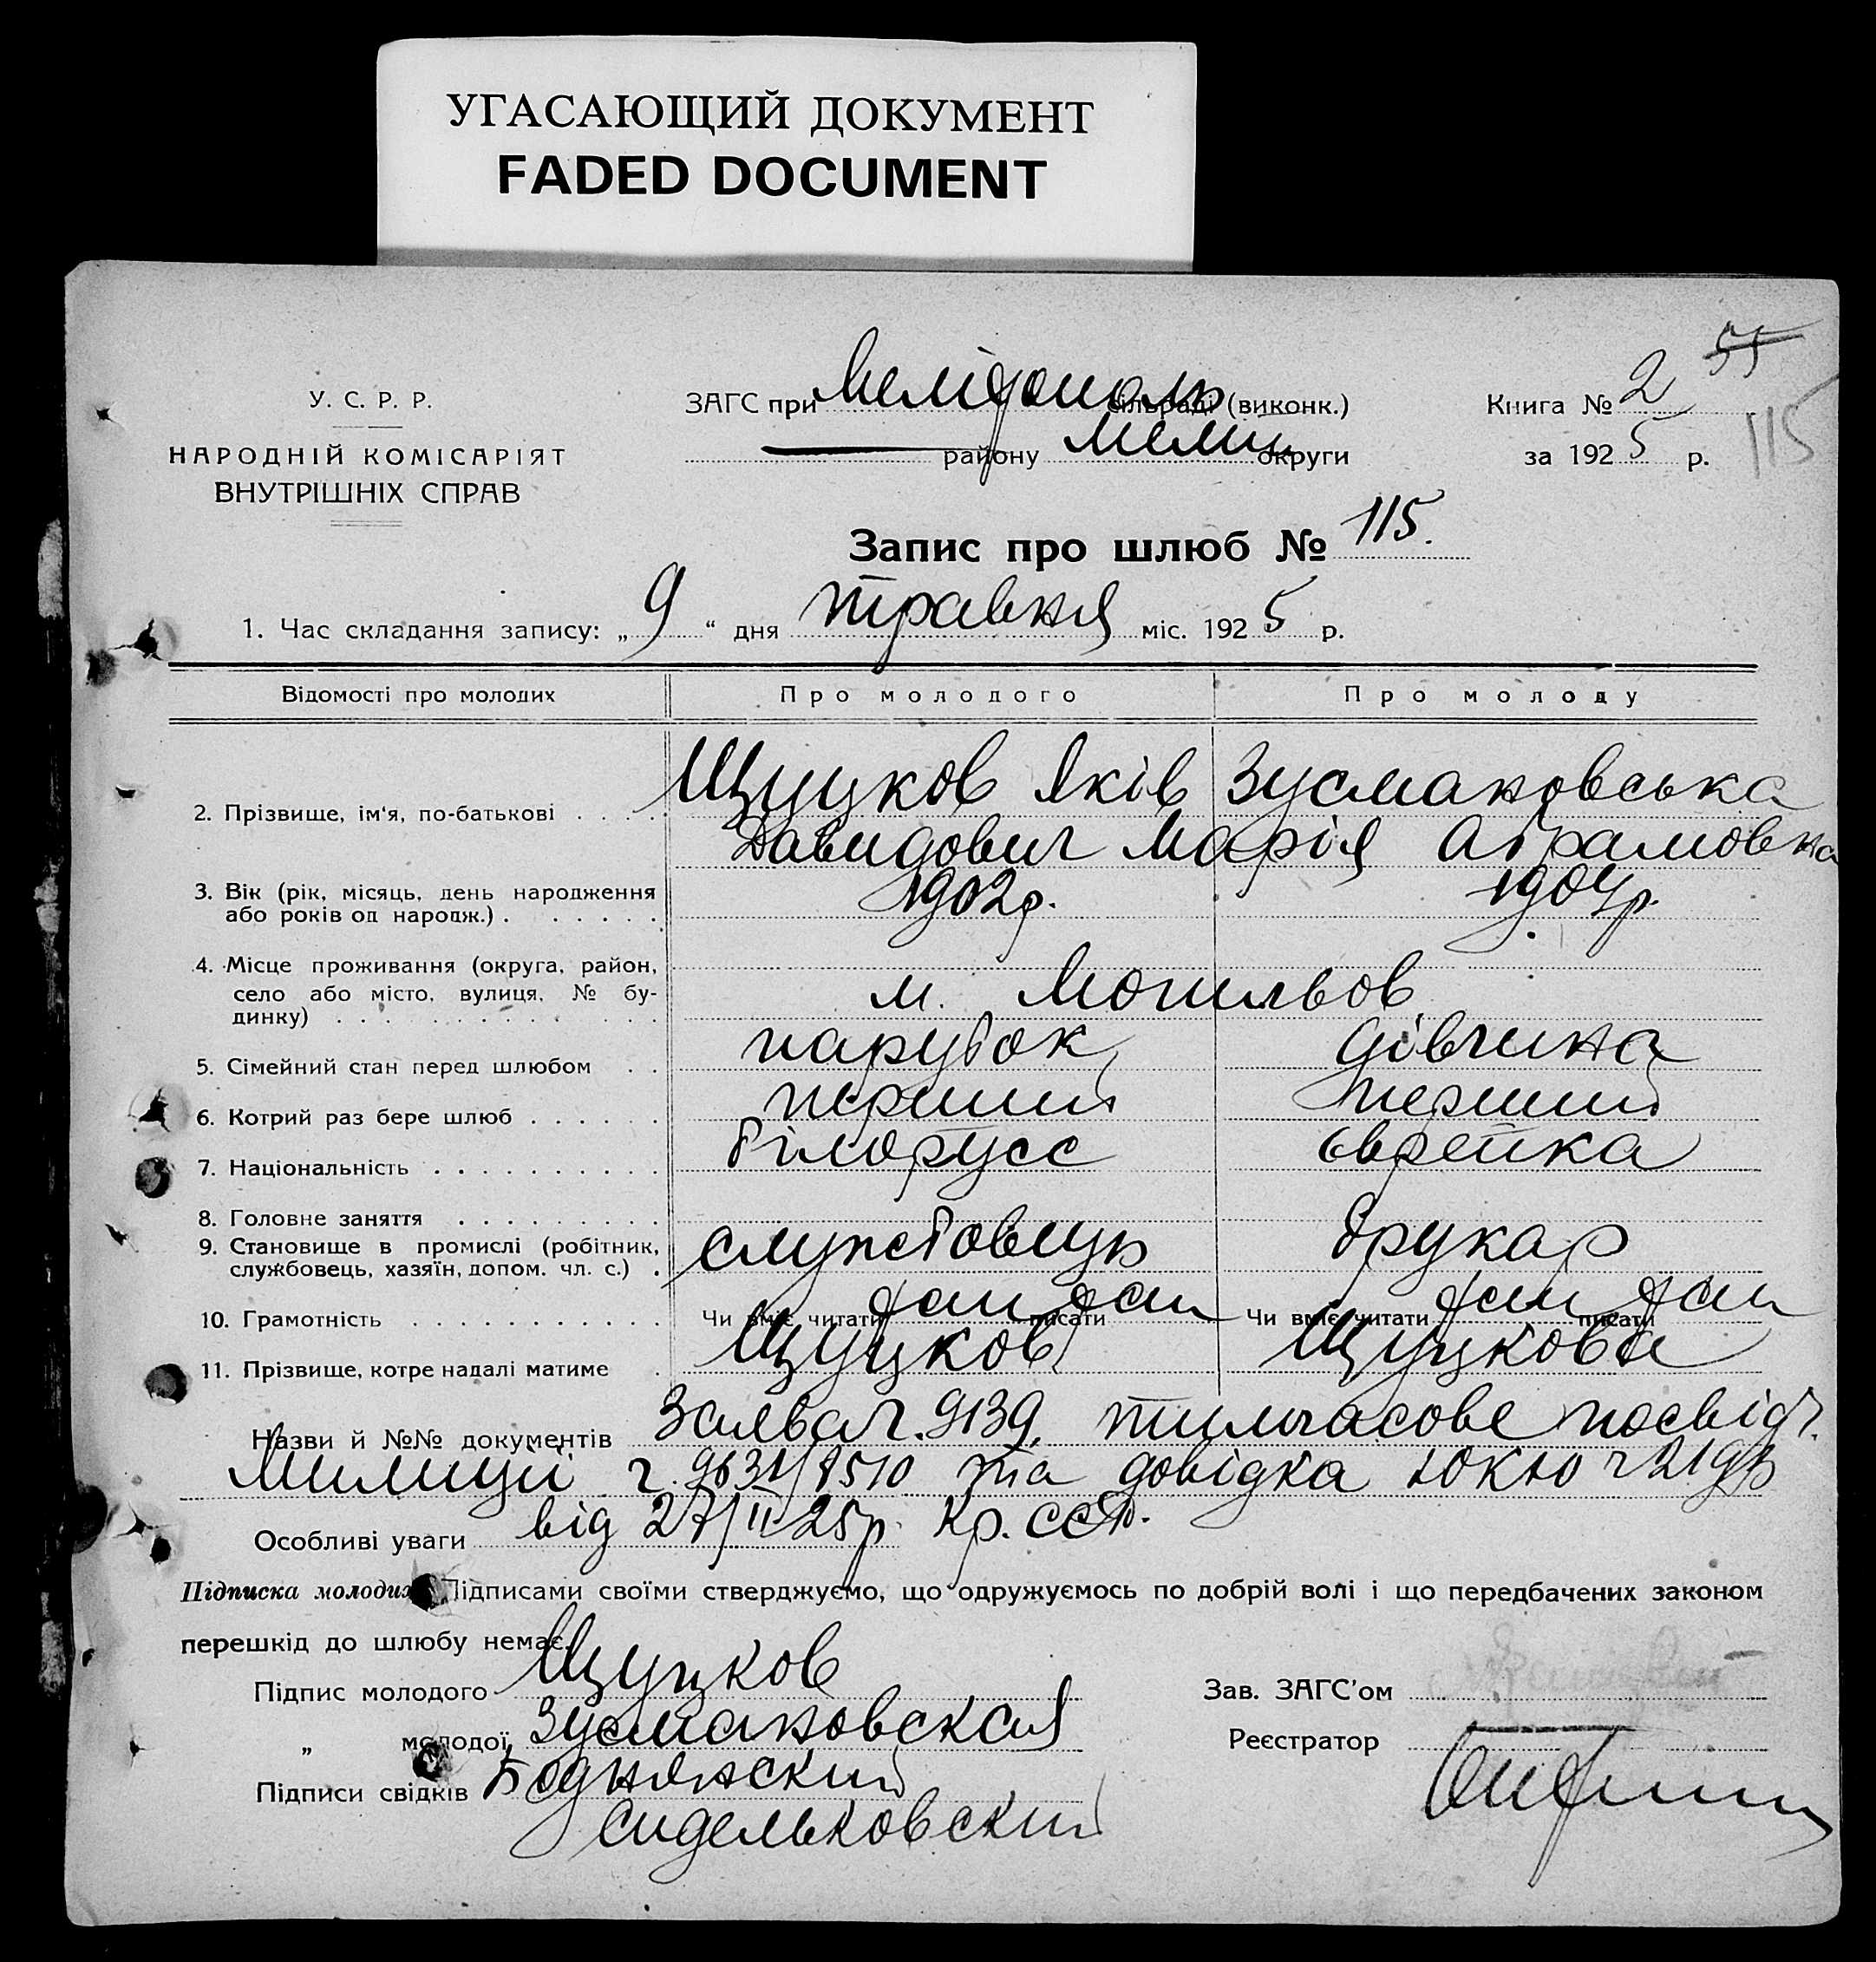 УГАСАЮЩИЙ ДОКУМЕНТ
FADED DOCUMENT
55
У. С. Р. Р.
НАРОДНІЙ КОМІСАРІЯТ
ВНУТРІШНІХ СПРАВ
ЗАГС при Мелітополь сільраді (виконк.)
району Мелит округи
Книга № 2
за 1925 р.
115
Запис про шлюб № 115.
1. Час складання запису: „ 9 “ дня травня міс. 1925 р.
Відомості про молодих Про молодого Про молоду
2. Прізвище, ім'я, по-батькові Щуцков Яків Зусмановська
Давидович Марія Абрамовна
3. Вік (рік, місяць, день народження
або років од народж.) 1902р. 1904р.
4. Місце проживання (округа, район,
село або місто, вулиця, № бу-
динку) м. Могильов
5. Сімейний стан перед шлюбом парубок дівчина
6. Котрий раз бере шлюб перший перший
7. Національність білорусс єврейка
8. Головне заняття
9. Становище в промислі (робітник,
службовець, хазяїн, допом. чл. с.) службовець друкар
10. Грамотність Чи вміє читати так писати так Чи вміє читати так писати так
11. Прізвище, котре надалі матиме Щуцков Щуцкова
Назви й №№ документів Заява ч. 9139, тимчасове посвідч.
Милиції ч. 9631/8510 та довідка
Особливі уваги від 27/II 25р.
Підписка молодих. Підписами своїми стверджуємо, що одружуємось по добрій волі і що передбачених законом
перешкід до шлюбу немає.
Підпис молодого Щуцков
„ молодої Зусмановская
Підписи свідків Боднянский
Сидельковский
Зав. ЗАГС'ом
Реєстратор